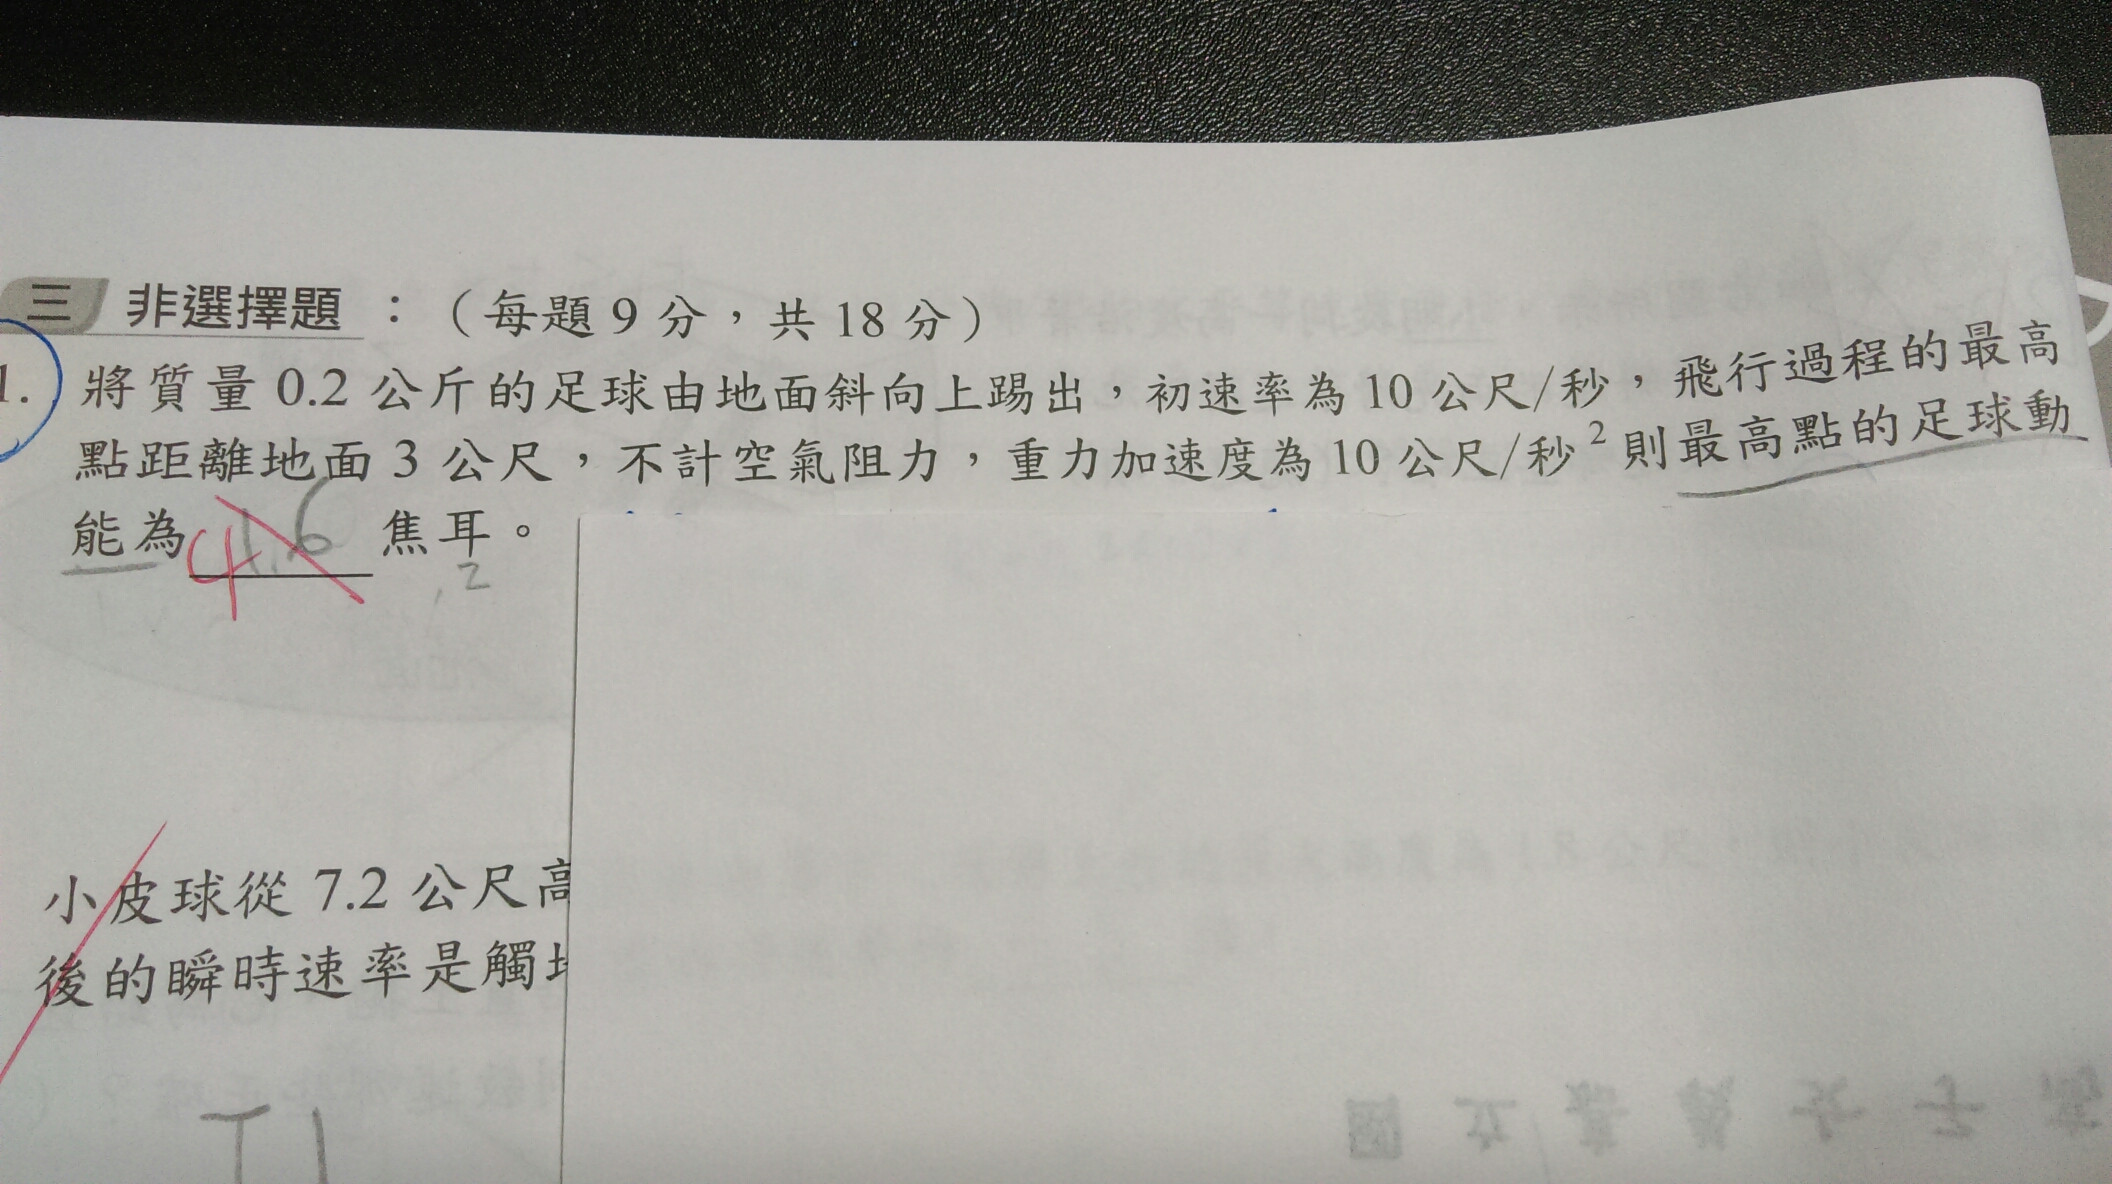 三 非選擇題 ：（每題 9 分，共 18 分）
1. 將質量 0.2 公斤的足球由地面斜向上踢出，初速率為 10 公尺/秒，飛行過程的最高
點距離地面 3 公尺，不計空氣阻力，重力加速度為 10 公尺/秒² 則最高點的足球動
能為 4 1.6 焦耳。
2
小皮球從 7.2 公尺高
後的瞬時速率是觸